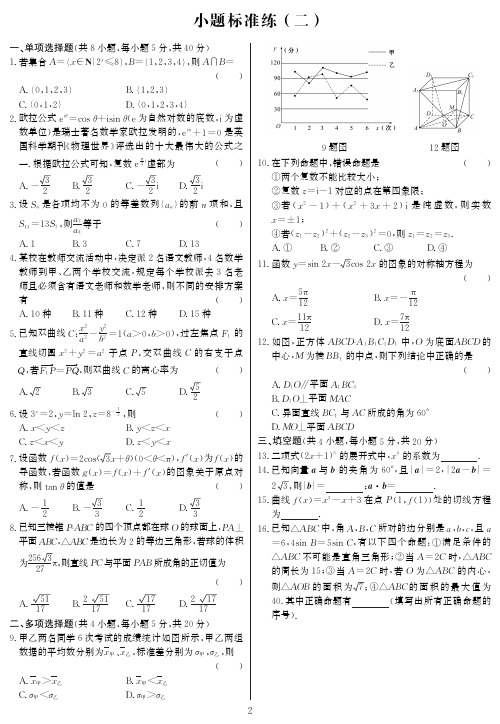 小题标准练(二)
一、单项选择题(共8小题,每小题5分,共40分)
1.若集合A={x∈N|2ˣ≤8},B={1,2,3,4},则A∩B=
( )
A.{0,1,2,3} B.{1,2,3}
C.{0,1,2} D.{0,1,2,3,4}
2.欧拉公式e^{iθ}=cos θ+isin θ(e为自然对数的底数,i为虚
数单位)是瑞士著名数学家欧拉发明的,e^{iπ}+1=0是英
国科学期刊《物理世界》评选出的十大最伟大的公式之
一.根据欧拉公式可知,复数
虚部为 ( )
A.-√3/2 B.√3/2 C.-√3/2 i D.√3/2 i
3.设Sₙ是各项均不为0的等差数列{aₙ}的前n项和,且
S₁₃=13S₇,则
等于 ( )
A.1 B.3 C.7 D.13
4.某校在教师交流活动中,决定派2名语文教师,4名数学
教师到甲、乙两个学校交流,规定每个学校派去3名老
师且必须含有语文老师和数学老师,则不同的安排方案
有 ( )
A.10种 B.11种 C.12种 D.15种
5.已知双曲线C:x²/a²-y²/b²=1(a>0,b>0),过左焦点F₁的
直线切圆x²+y²=a²于点P,交双曲线C的右支于点
Q,若F₁P=PQ,则双曲线C的离心率为 ( )
A.√2 B.√3 C.√5 D.√5/2
6.设3ˣ=2,y=ln 2,z=
,则 ( )
A.x<y<z B.y<z<x
C.z<x<y D.z<y<x
7.设函数f(x)=2cos(√3x+θ)(0<θ<π),f′(x)为f(x)的
导函数,若函数g(x)=f(x)+f′(x)的图象关于原点对
称,则tan θ的值是 ( )
A.-1/2 B.-√3/3 C.1/2 D.√3/3
8.已知三棱锥P-ABC的四个顶点都在球O的球面上,PA⊥
平面ABC,△ABC是边长为2的等边三角形,若球的体积
为256√3/27 π,则直线PC与平面PAB所成角的正切值为
( )
A.√51/17 B.2√51/17 C.√17/17 D.2√17/17
二、多项选择题(共4小题,每小题5分,共20分)
9.甲乙两名同学6次考试的成绩统计如图所示,甲乙两组
数据的平均数分别为x甲、x乙,标准差分别为σ甲,σ乙,则
( )
A.x甲>x乙 B.x甲<x乙
C.σ甲<σ乙 D.σ甲>σ乙
y(分)
甲
乙
120
90
60
30
O 1 2 3 4 5 6 x(次)
D₁
C₁
A₁
B₁
M
D
C
O
A
B
9题图 12题图
10.在下列命题中,错误命题是 ( )
①两个复数不能比较大小;
②复数z=i-1对应的点在第四象限;
③若(x²-1)+(x²+3x+2)i是纯虚数,则实数
x=±1;
④若(z₁-z₂)²+(z₂-z₃)²=0,则z₁=z₂=z₃.
A.① B.② C.③ D.④
11.函数y=sin 2x-√3cos 2x的图象的对称轴方程为
( )
A.x=5π/12 B.x=-π/12
C.x=11π/12 D.x=7π/12
12.如图,正方体ABCD-A₁B₁C₁D₁中,O为底面ABCD的
中心,M为棱BB₁的中点,则下列结论中正确的是
( )
A.D₁O∥平面A₁BC₁
B.D₁O⊥平面MAC
C.异面直线BC₁与AC所成的角为60°
D.MO⊥平面ABCD
三、填空题(共4小题,每小题5分,共20分)
13.二项式(2x+1)⁵的展开式中,x³的系数为 .
14.已知向量a与b的夹角为60°,且|a|=2,|2a-b|=
2√3,则|b|= ;a·b= .
15.曲线f(x)=x²-x+3在点P(1,f(1))处的切线方程
为 .
16.已知△ABC中,角A,B,C所对的边分别是a,b,c,且a
=6,4sin B=5sin C,有以下四个命题:①满足条件的
△ABC不可能是直角三角形;②当A=2C时,△ABC
的周长为15;③当A=2C时,若O为△ABC的内心,
则△AOB的面积为√7;④△ABC的面积的最大值为
40.其中正确命题有 (填写出所有正确命题的
序号).
2